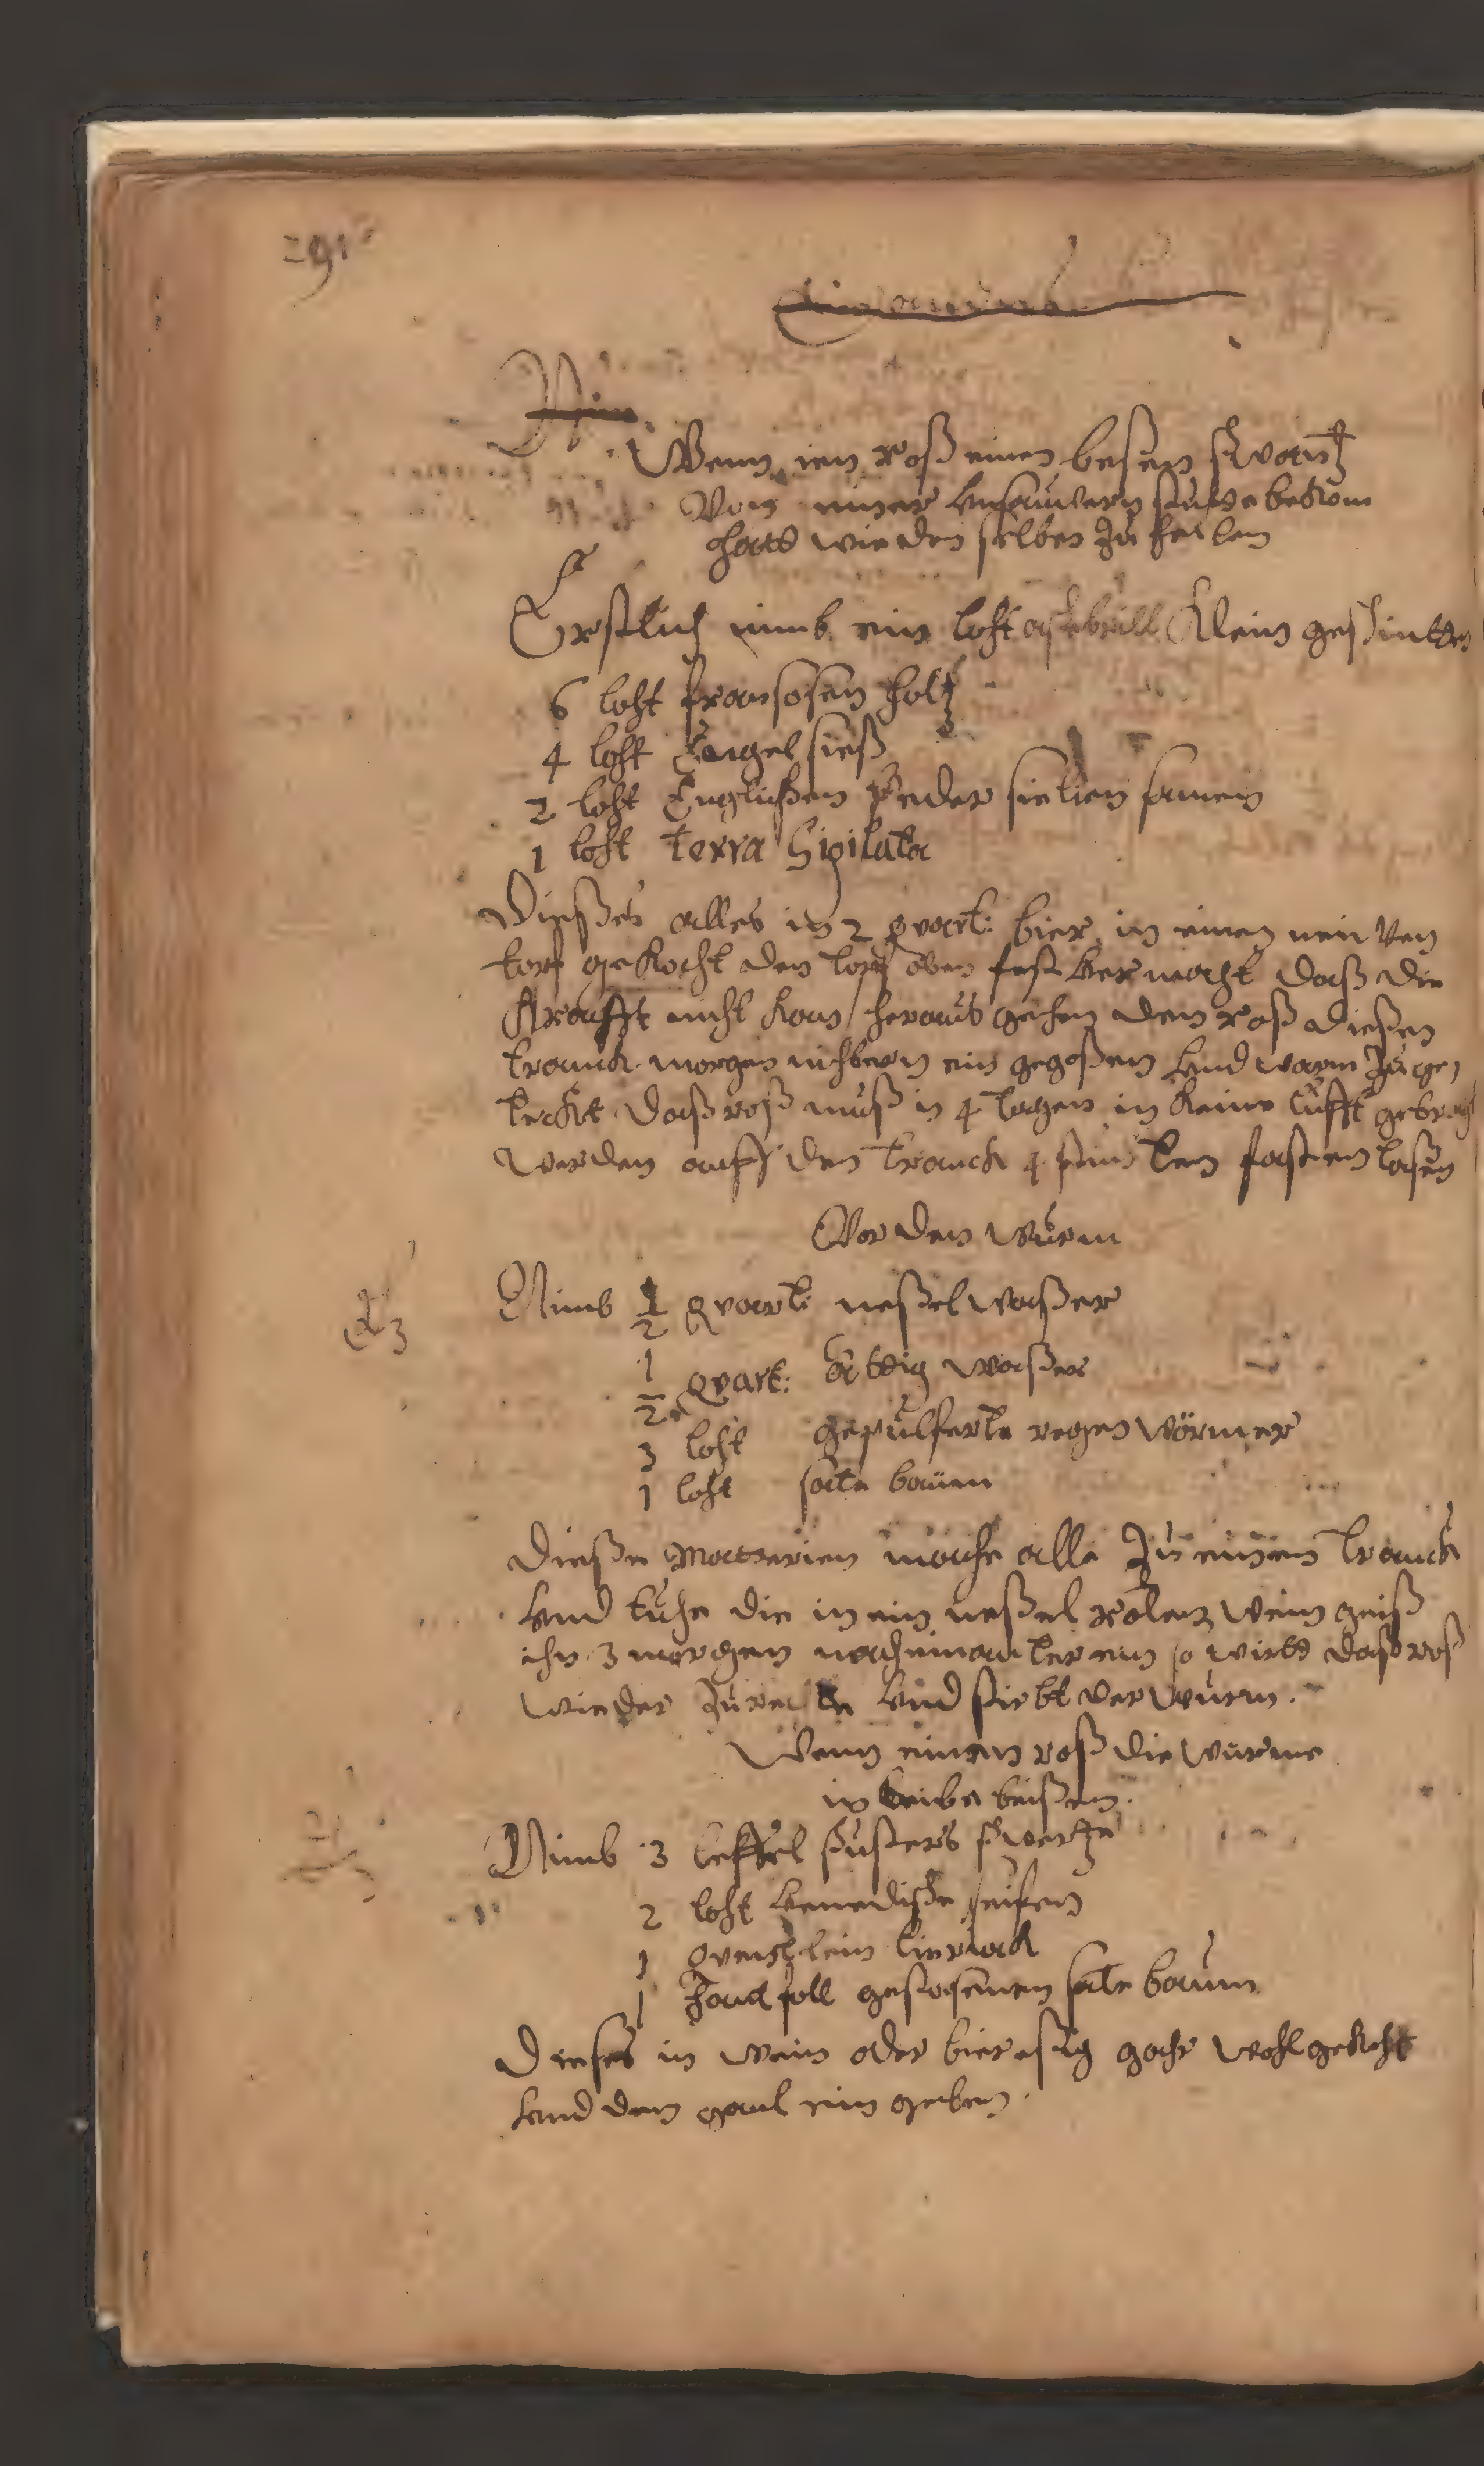 291
Ein anders
Nim
Wenn ien roß einen beßen schwantz
Von einer unsauvern stutte bekom
hatt wie den selben zu heilen
Erstlich nimb ein loht Klein geschnitten
6 loht fransosen holtz
4 loht Engel sieß
2 loht Englischen Peder sielien samen
1 loht Terra Sigilata
Dießes alles in 2 quart: bier in einen neu ven
topf gekocht den topf oben fest vermacht daß die
Krafft nicht kan heraus gehen den roß dießen
tranck morgen nichtern ein gegoßen und warm zu ge
deckt daß roß muß in 4 tagen in keine lufft gebracht
werden auff den tranck 4 stunden fasten laßen
Vor den wurm
Nimb 1/2 quart: neßel waßer
1/2 quart: waßer
3 loht gepulferte regen wörmer
1 loht sate baum
Dieße Matterien mache alle zu einem tranck
und tuhe die in ein neßel wein geiß
ihn 3 morgen nacheinanter ein so wirtt daß roß
wieder zu rechte und stirbt der wurm.
Wenn einem roß die wurme
in leibe beißen.
Nimb 3 leffel schusters schwertze
2 loht venedische seifen
1 quentlein tieriack
1 Hand foll gestosenen sate baum
Dieses in wein oder bier esig gahr wohl gekocht
und dem gaul ein geben.